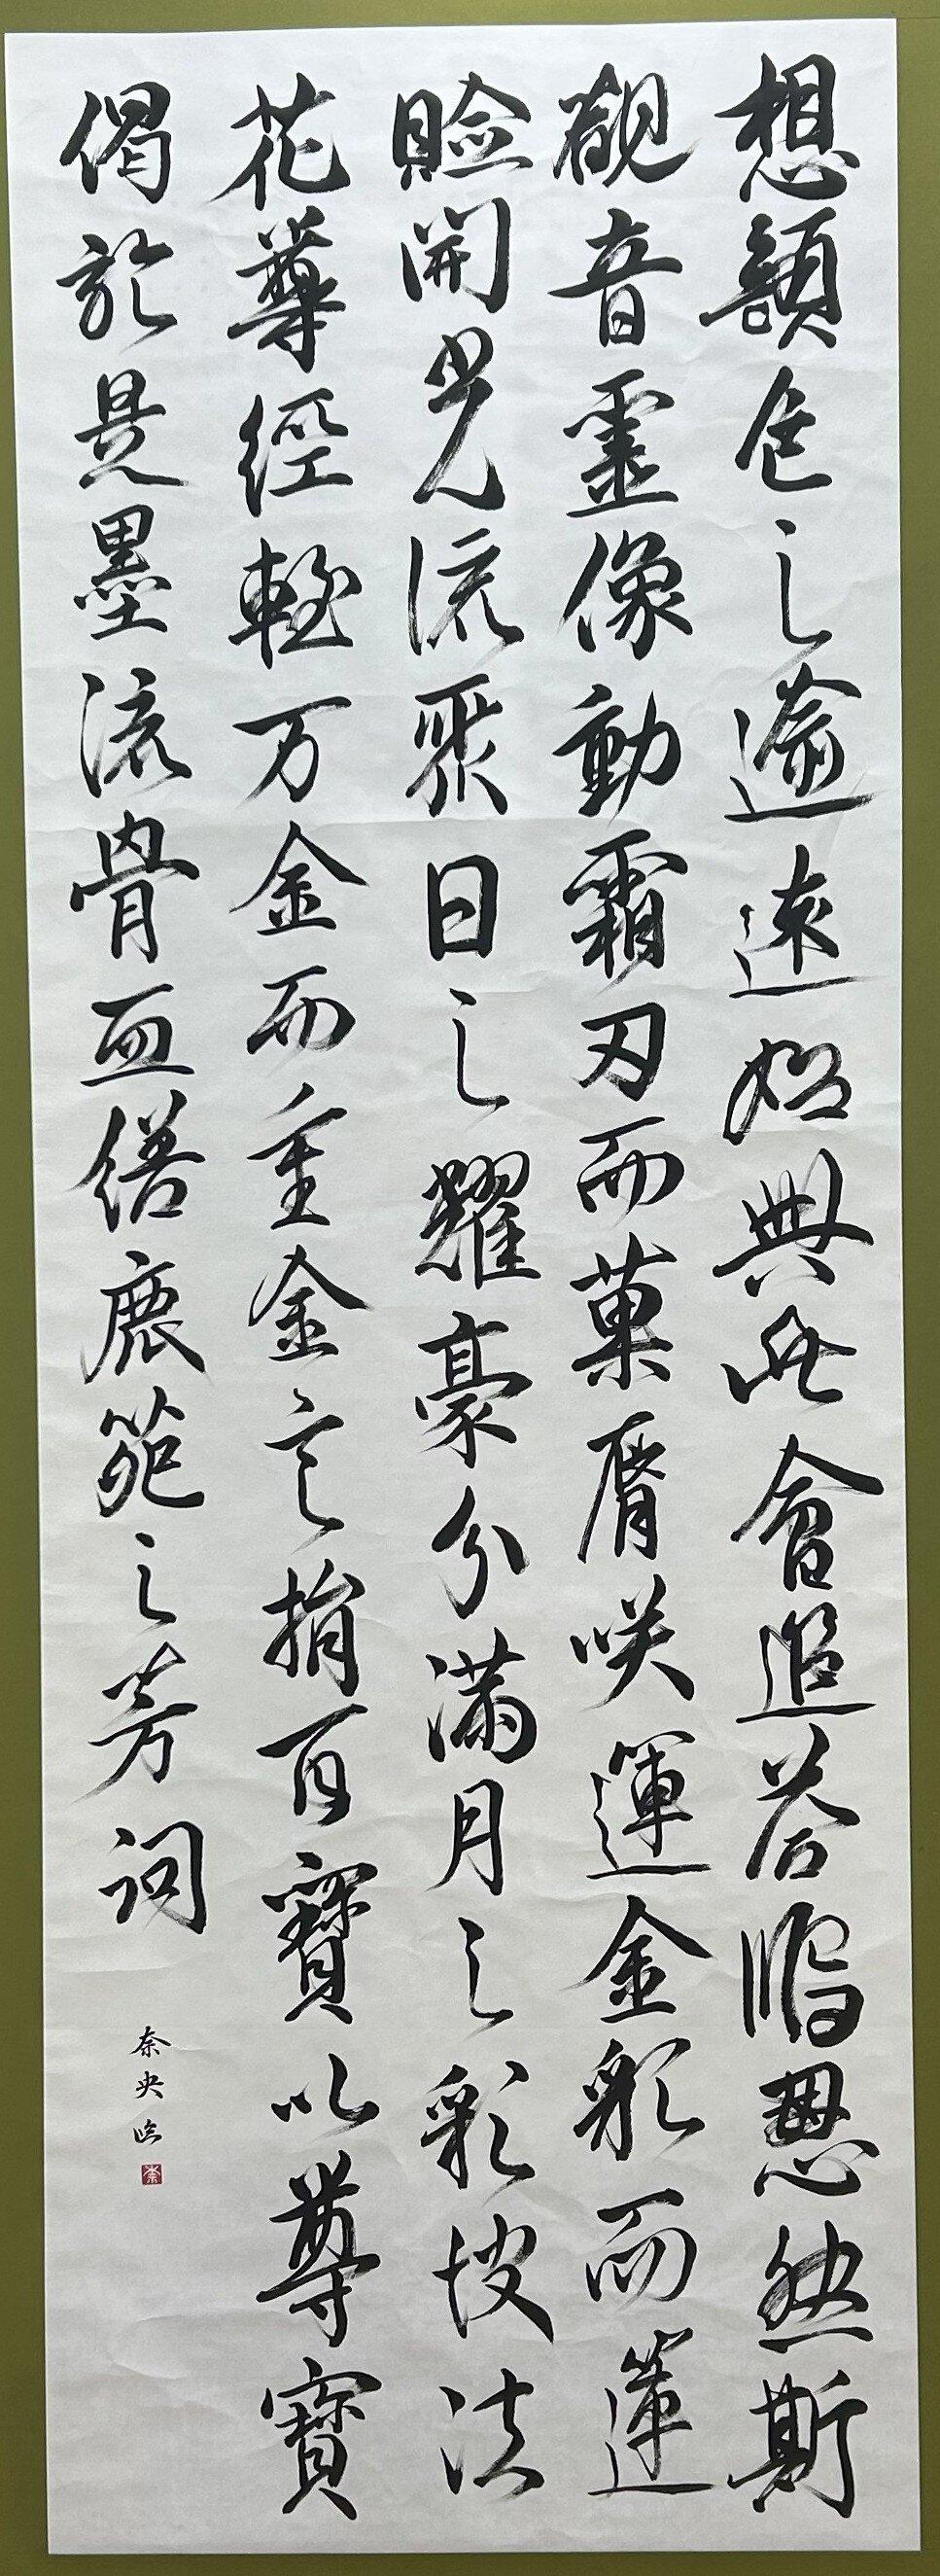 想顔色之逾遠始興此會追荅鴻恩然斯
觀音靈像動霜刃而菓脣咲運金彩而蓮
瞼開光流聚日之耀豪分滿月之彩披法
花尊經輕万金而重金言捐百寶以尊寶
偈於是墨流骨血繕鹿苑之芳詞
奈央臨